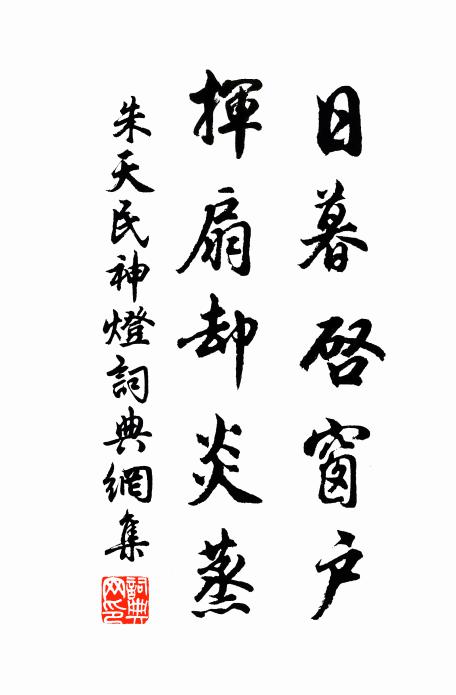 日暮啓窗户
揮扇却炎蒸
朱天民神燈詞典網集
詞典网印